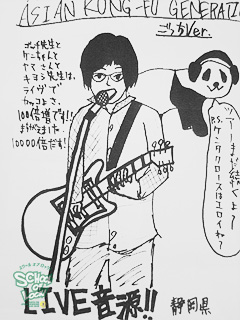 ASIAN KUNG-FU GENERATIO
ごっちVer.
ゴッチ先生と
ケンちゃんと
ヤマさんと
キヨシ先生は、
ライヴで
カッコよさ、
100倍増です!!
まちがえました
10000倍だぁ!
ツアーまだ続くよ〜
P.S. ケンタクロースは
LIVE音源!!
静岡県
SCHOOL
OF LOCK!